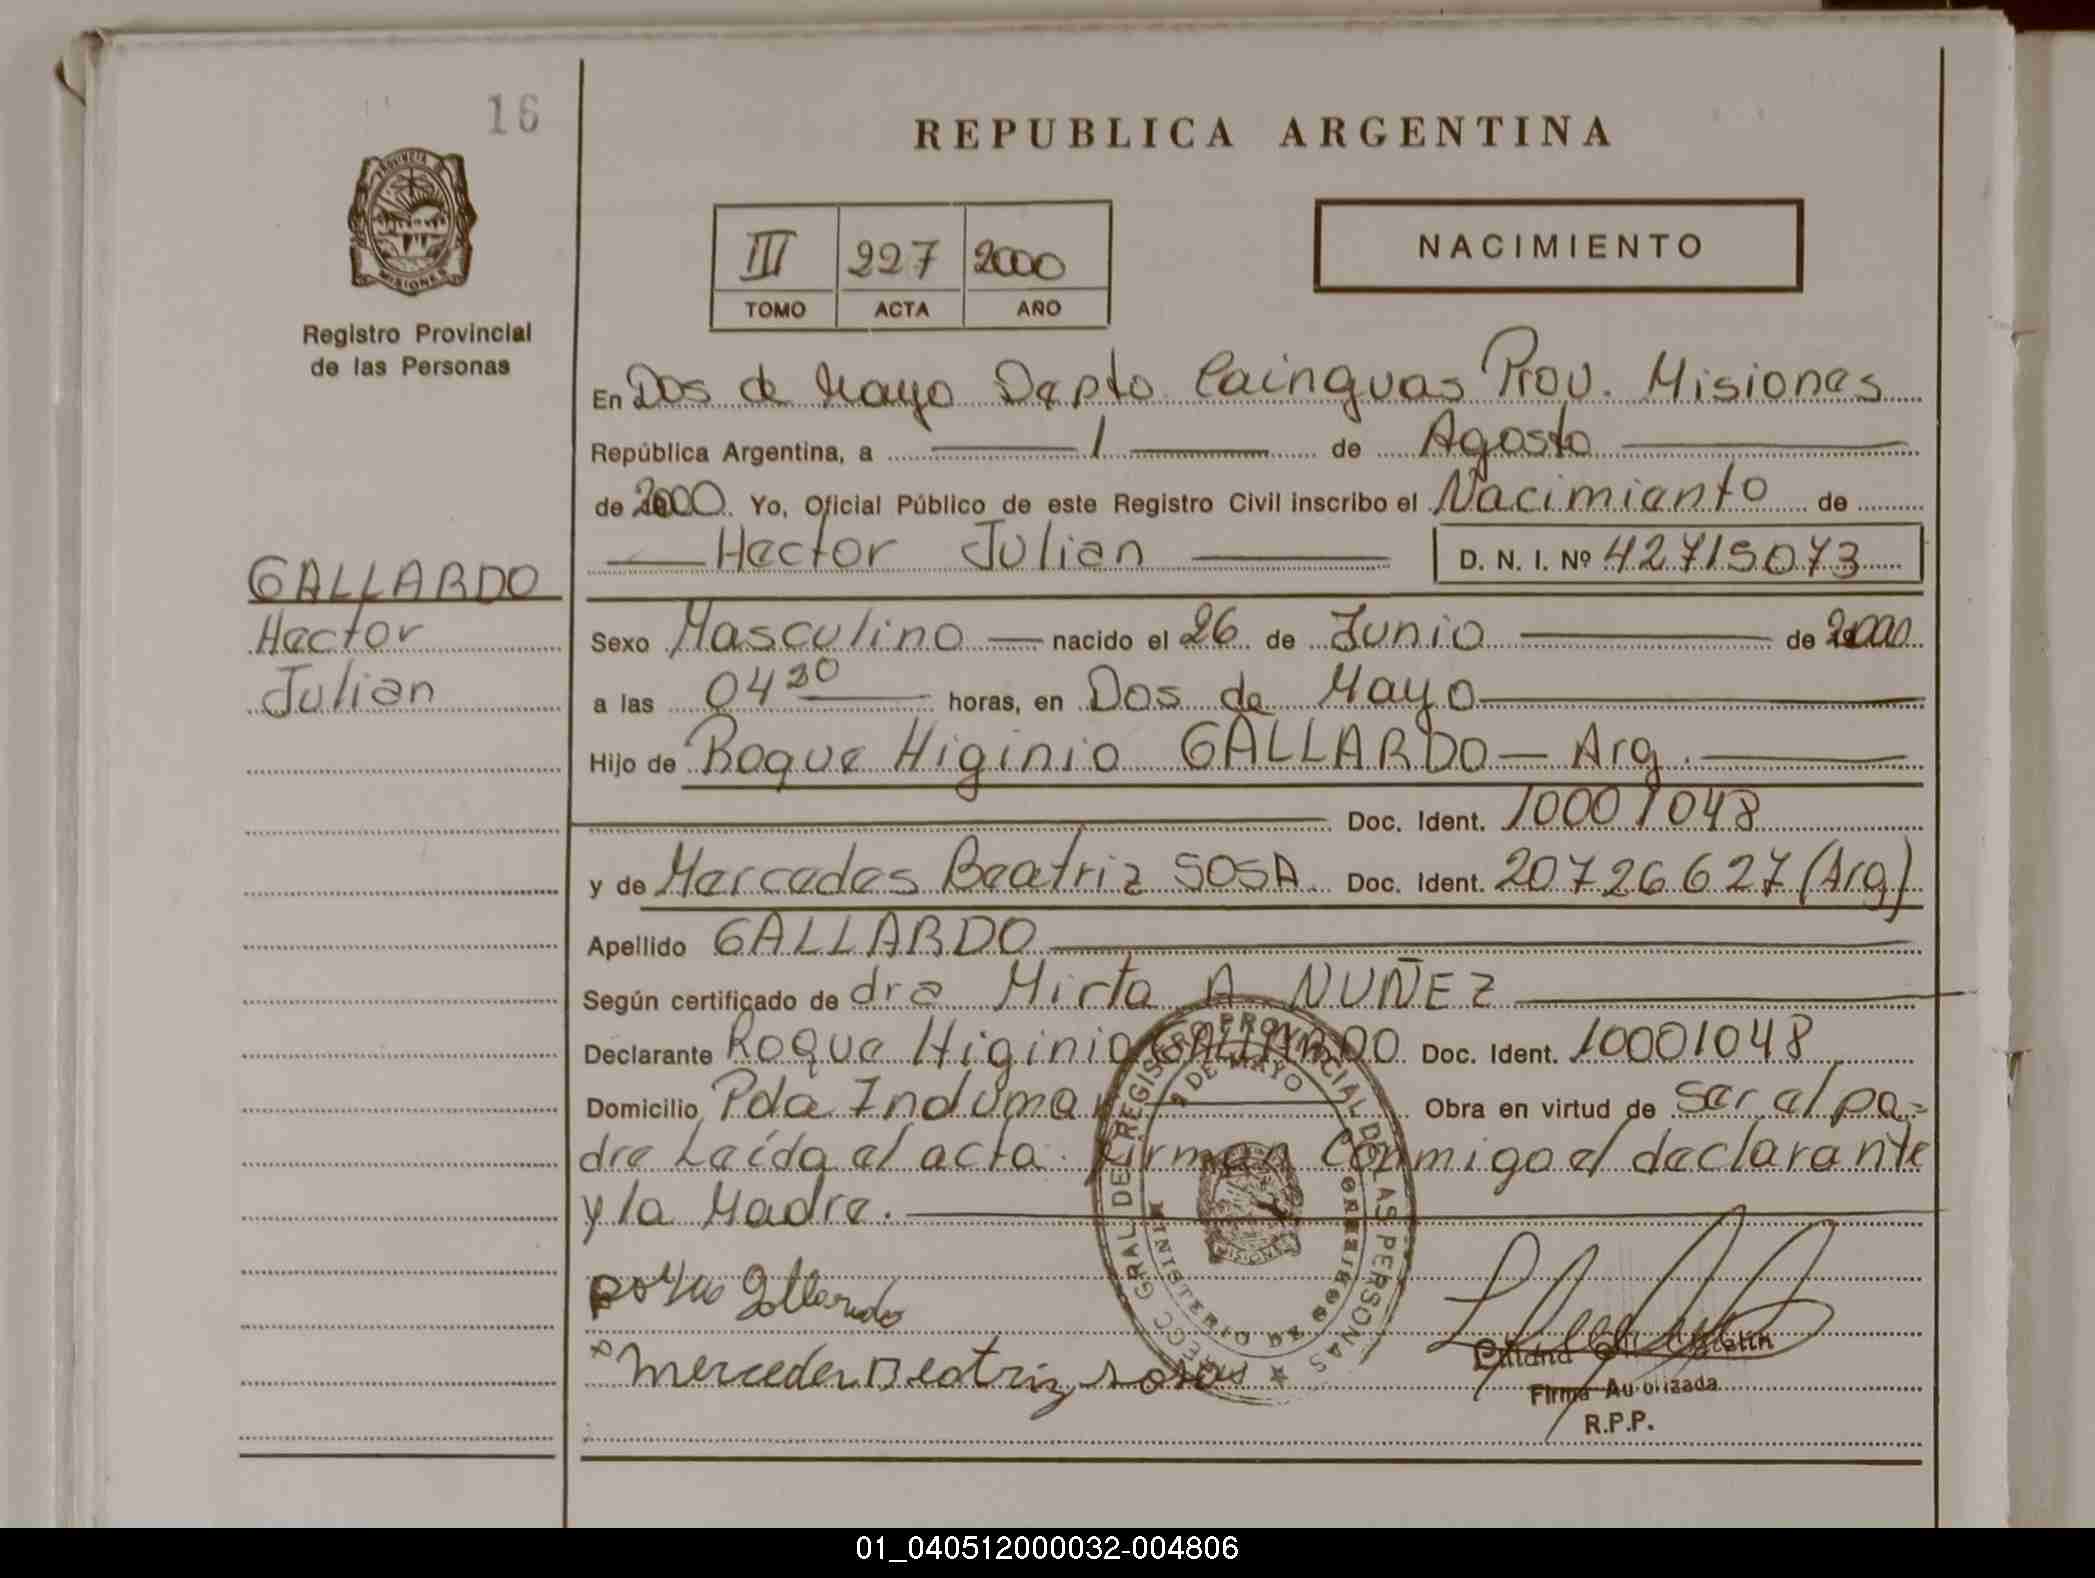 16
REPUBLICA ARGENTINA
PROVINCIA DE
MISIONES
Registro Provincial
de las Personas
III 227 2000
TOMO ACTA AÑO
NACIMIENTO
En Dos de Mayo Depto Cainguas Prov. Misiones
República Argentina, a 1 de Agosto
de 2000 Yo, Oficial Público de este Registro Civil inscribo el Nacimiento de
Hector Julian D. N. I. Nº 42715073
GALLARDO
Hector
Julian
Sexo Masculino nacido el 26 de Junio de 2000
a las 04 30 horas, en Dos de Mayo
Hijo de Roque Higinio GALLARDO - Arg.
Doc. Ident. 10001048
y de Mercedes Beatriz SOSA Doc. Ident. 20726627 (Arg)
Apellido GALLARDO
Según certificado de dra Mirta A NUÑEZ
Declarante Roque Higinio GALLARDO Doc. Ident. 10001048
Domicilio Pda Indumar Obra en virtud de ser el pa-
dre Leída el acta. Firman Conmigo el declarante
y la Madre.
DIRECC GRAL DEL REGISTRO PROVINCIAL DE LAS PERSONAS
2 DE MAYO
MINISTERIO DE GOBIERNO
MISIONES
Gallardo
Mercedes Beatriz sosa
Firma Autorizada
R.P.P.
01_040512000032-004806